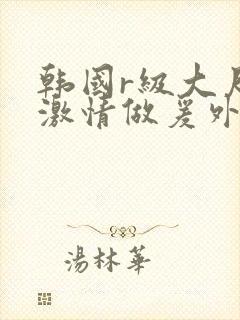 韩國r級大尺
激情做爰外
湯林華